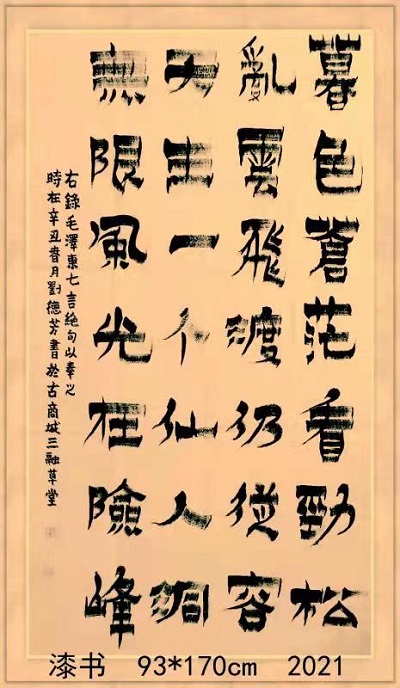 暮色蒼茫看勁松
亂雲飛渡仍從容
天生一个仙人洞
無限風光在險峰
右錄毛澤東七言絕句以奉之
時在辛丑春月劉德芳書於古商城三融草堂
漆书 93*170cm 2021